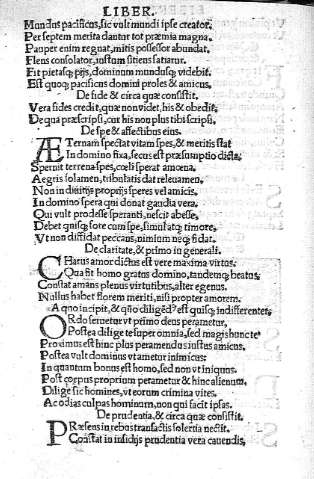 LIBER.
Mundus pacificus, sic vult mundi ipse creator.
Per septem merita dantur tot præmia magna.
Pauper enim regnat, mitis possessor abundat.
Flens consolator, iustum sitiens satiatur.
Fit pietasq; pijs, dominum mundusq; videbit.
Est quoq; pacificus domini proles & amicus.
De fide & circa quæ consistit.
Vera fides credit, quæ non videt, his & obedit;
De qua præscripsi, cur his non plus tibi scripsi,
De spe & affectibus eius.
ÆTernam spectat vitam spes, & meritis stat
In domino fixa, secus est præsumptio dicta;
Spernit terrena spes, cœli sperat amœna.
Aegris solamen, tribulatis dat releuamen,
Non in diuitijs proprijs speres vel amicis,
In domino spera qui donat gaudia vera.
Qui vult prodesse speranti, nescit abesse,
Debet quisq; fore cum spe, simulatq; timore,
Vt non diffidat peccans, nimium neq; fidat.
De claritate, & primo in generali.
CHarus amor dictus est vere maxima virtus.
Qua fit homo gratus domino, tandemq; beatus;
Constat amans plenus virtutibus, alter egenus.
Nullus habet florem meriti, nisi propter amorem.
A quo incipit, & qño diligedꝰ est quisq; indifferenter;
ORdo seruetur vt primo deus perametur,
Postea dilige te super omnia, sed magis hunc te
Proximus est hinc plus peramendus iustus amicus.
Postea vult dominus vt ametur inimicus:
In quantum bonus est homo, sed non vt iniquus.
Post corpus proprium perametur & hinc alienum.
Dilige sic homines, vt eorum crimina vites.
Ac odias culpas hominum, non qui facit ipsas.
De prudentia, & circa quæ consistit.
PRæsens in rebus transactis solertia nectit.
Constat in insidijs prudentia vera cauendis,